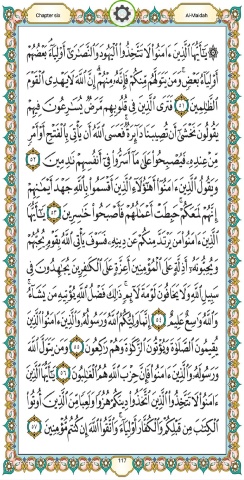 Chapter six
Al-Maidah
۞ يَٰٓأَيُّهَا ٱلَّذِينَ ءَامَنُوا۟ لَا تَتَّخِذُوا۟ ٱلْيَهُودَ وَٱلنَّصَٰرَىٰٓ أَوْلِيَآءَ ۘ بَعْضُهُمْ
أَوْلِيَآءُ بَعْضٍ ۚ وَمَن يَتَوَلَّهُم مِّنكُمْ فَإِنَّهُۥ مِنْهُمْ ۗ إِنَّ ٱللَّهَ لَا يَهْدِى ٱلْقَوْمَ
ٱلظَّٰلِمِينَ ٥١ فَتَرَى ٱلَّذِينَ فِى قُلُوبِهِم مَّرَضٌ يُسَٰرِعُونَ فِيهِمْ
يَقُولُونَ نَخْشَىٰٓ أَن تُصِيبَنَا دَآئِرَةٌ ۚ فَعَسَى ٱللَّهُ أَن يَأْتِىَ بِٱلْفَتْحِ أَوْ أَمْرٍ
مِّنْ عِندِهِۦ فَيُصْبِحُوا۟ عَلَىٰ مَآ أَسَرُّوا۟ فِىٓ أَنفُسِهِمْ نَٰدِمِينَ ٥٢
وَيَقُولُ ٱلَّذِينَ ءَامَنُوٓا۟ أَهَٰٓؤُلَآءِ ٱلَّذِينَ أَقْسَمُوا۟ بِٱللَّهِ جَهْدَ أَيْمَٰنِهِمْ ۙ
إِنَّهُمْ لَمَعَكُمْ ۚ حَبِطَتْ أَعْمَٰلُهُمْ فَأَصْبَحُوا۟ خَٰسِرِينَ ٥٣ يَٰٓأَيُّهَا
ٱلَّذِينَ ءَامَنُوا۟ مَن يَرْتَدَّ مِنكُمْ عَن دِينِهِۦ فَسَوْفَ يَأْتِى ٱللَّهُ بِقَوْمٍ يُحِبُّهُمْ
وَيُحِبُّونَهُۥٓ أَذِلَّةٍ عَلَى ٱلْمُؤْمِنِينَ أَعِزَّةٍ عَلَى ٱلْكَٰفِرِينَ يُجَٰهِدُونَ فِى
سَبِيلِ ٱللَّهِ وَلَا يَخَافُونَ لَوْمَةَ لَآئِمٍ ۚ ذَٰلِكَ فَضْلُ ٱللَّهِ يُؤْتِيهِ مَن يَشَآءُ ۚ
وَٱللَّهُ وَٰسِعٌ عَلِيمٌ ٥٤ إِنَّمَا وَلِيُّكُمُ ٱللَّهُ وَرَسُولُهُۥ وَٱلَّذِينَ ءَامَنُوا۟ ٱلَّذِينَ
يُقِيمُونَ ٱلصَّلَوٰةَ وَيُؤْتُونَ ٱلزَّكَوٰةَ وَهُمْ رَٰكِعُونَ ٥٥ وَمَن يَتَوَلَّ ٱللَّهَ
وَرَسُولَهُۥ وَٱلَّذِينَ ءَامَنُوا۟ فَإِنَّ حِزْبَ ٱللَّهِ هُمُ ٱلْغَٰلِبُونَ ٥٦ يَٰٓأَيُّهَا ٱلَّذِينَ
ءَامَنُوا۟ لَا تَتَّخِذُوا۟ ٱلَّذِينَ ٱتَّخَذُوا۟ دِينَكُمْ هُزُوًا وَلَعِبًا مِّنَ ٱلَّذِينَ أُوتُوا۟
ٱلْكِتَٰبَ مِن قَبْلِكُمْ وَٱلْكُفَّارَ أَوْلِيَآءَ ۚ وَٱتَّقُوا۟ ٱللَّهَ إِن كُنتُم مُّؤْمِنِينَ ٥٧
117